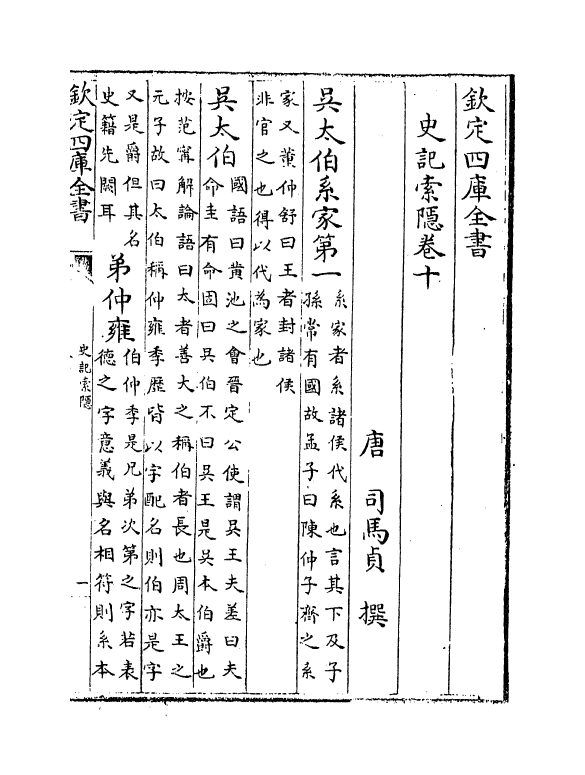 欽定四庫全書
史記索隱卷十
唐 司馬貞 撰
吳太伯系家第一
系家者系諸侯代系也言其下及子
孫常有國故孟子曰陳仲子齊之系
家又董仲舒曰王者封諸侯
非官之也得以代為家也
吳太伯
國語曰黄池之會晉定公使謂吳王夫差曰夫
命圭有命固曰吳伯不曰吳王是吳本伯爵也
按范甯解論語曰太者善大之稱伯者長也周太王之
元子故曰太伯稱仲雍季歷皆以字配名則伯亦是字
又是爵但其名
史籍先闕耳
弟仲雍
伯仲季是兄弟次第之字若表
德之字意義與名相符則系本
欽定四庫全書
史記索隱
一